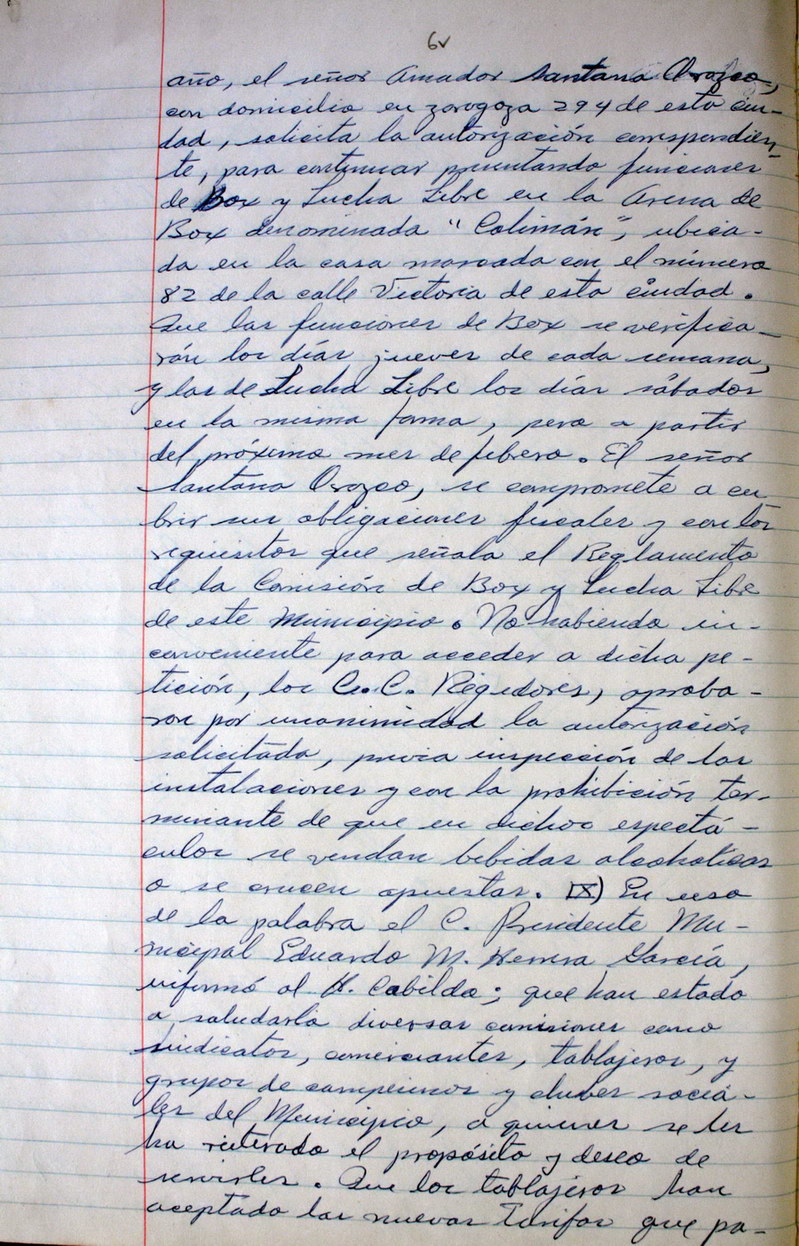 6v
año, el señor Amador Santana Orozco,
con domicilio en zaragoza 294 de esta ciu-
dad, solicita la autorización correspondien-
te, para continuar presentando funciones
de Box y Lucha Libre en la Arena de
Box denominada "Colimán", ubica-
da en la casa marcada con el número
82 de la calle Victoria de esta ciudad.
Que las funciones de Box se verifica-
rán los días jueves de cada semana,
y las de Lucha Libre los días sábados
en la misma forma, pero a partir
del próximo mes de febrero. El señor
Santana Orozco, se compromete a cu
brir sus obligaciones fiscales y con los
requisitos que señala el Reglamento
de la Comisión de Box y Lucha Libre
de este Municipio. No habiendo in-
conveniente para acceder a dicha pe-
tición, los C.C. Regidores, aproba-
ron por unanimidad la autorización
solicitada, previa inspección de las
instalaciones y con la prohibición ter-
minante de que en dichos espectá-
culos se vendan bebidas alcohólicas
o se crucen apuestas. IX) En uso
de la palabra el C. Presidente Mu-
nicipal Eduardo M. Herrera García,
informó al H. Cabildo; que han estado
a saludarlo diversas comisiones como
sindicatos, comerciantes, tablajeros, y
grupos de campesinos y clubes socia-
les del Municipio, a quienes se les
ha reiterado el propósito y deseo de
servirles. Que los tablajeros han
aceptado las nuevas Tarifas que pa-